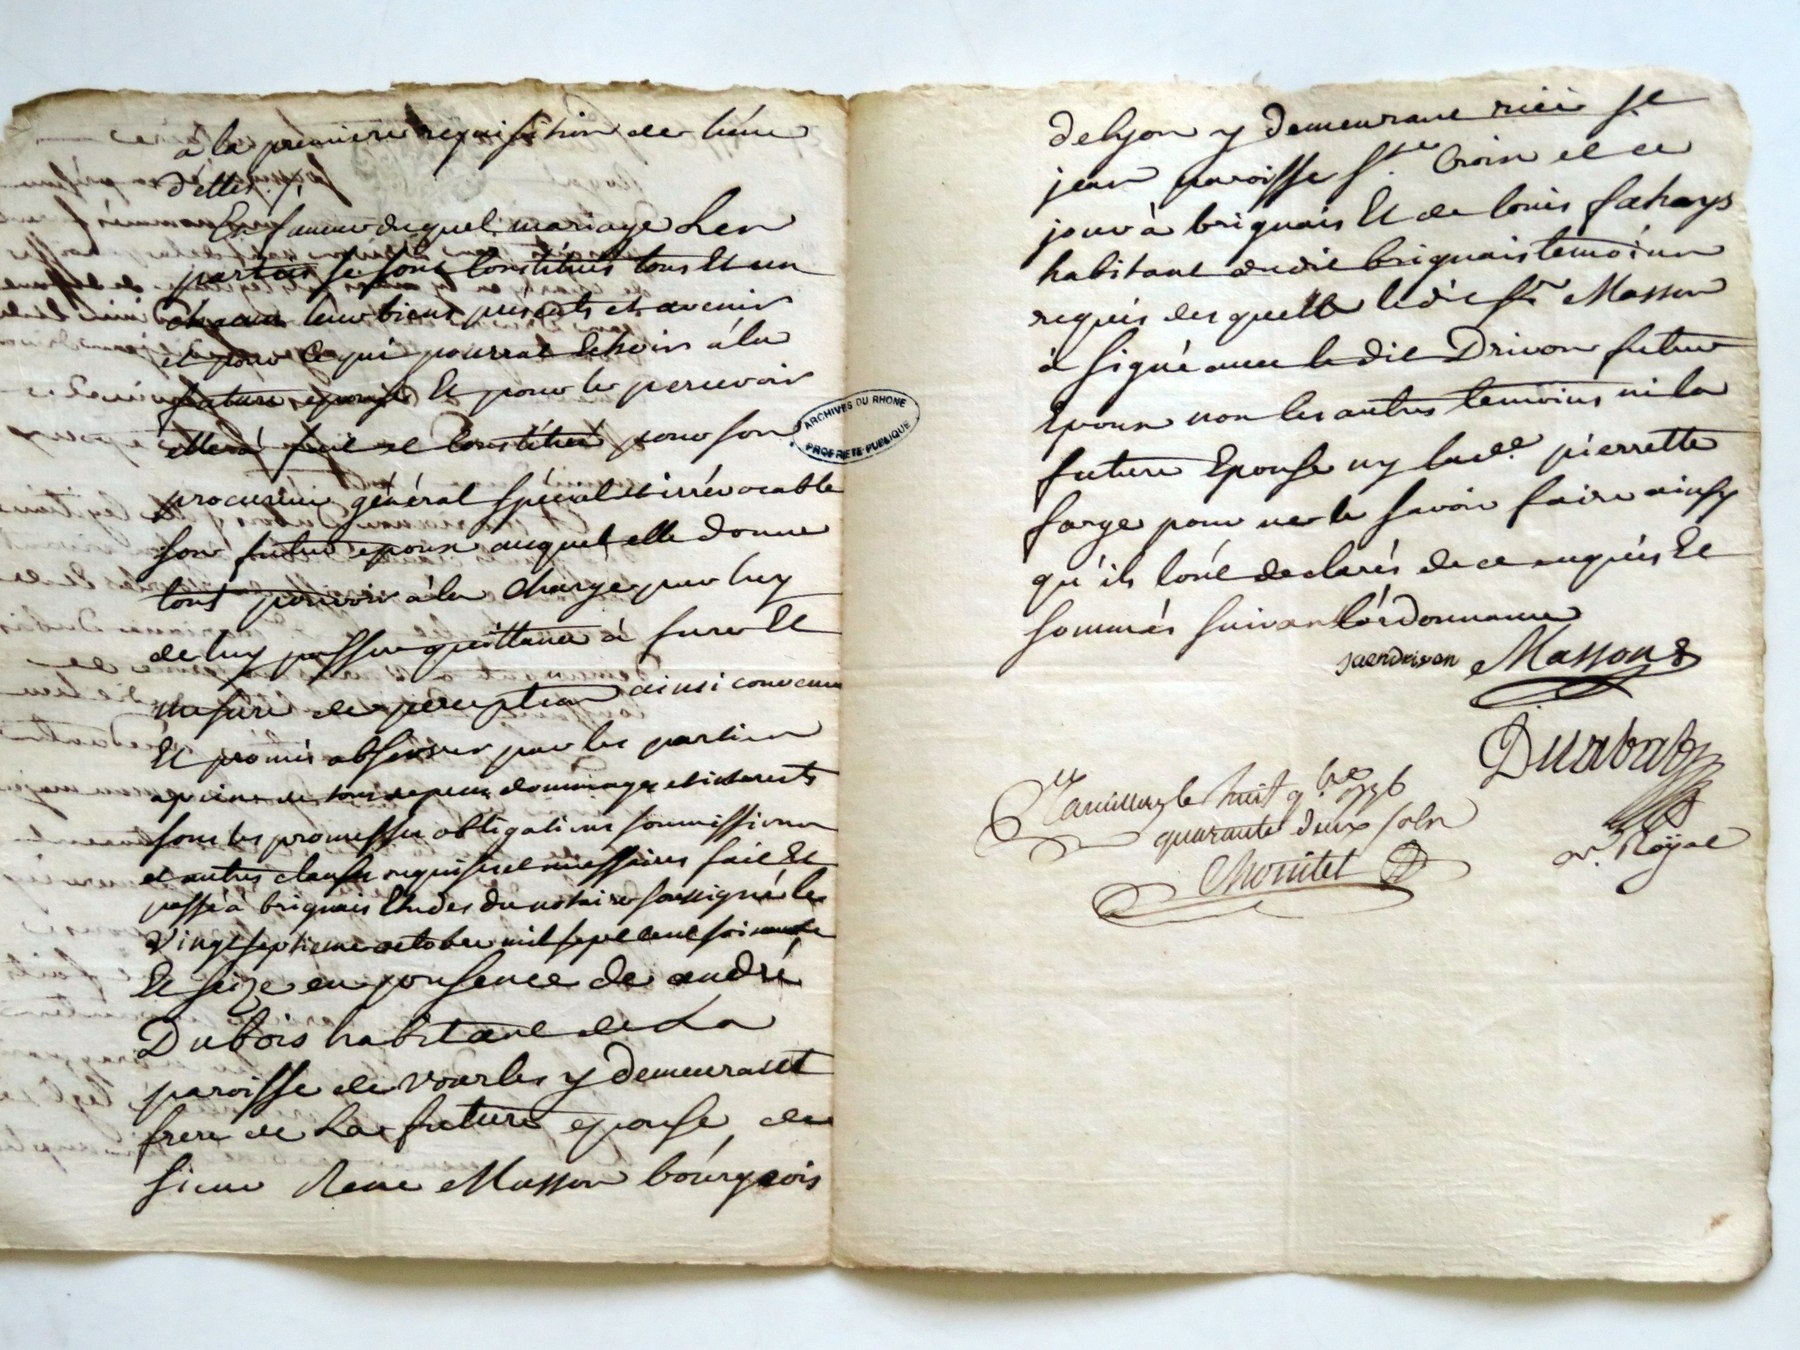 a la premiere requisition de lune
d'elles ./.
En faveur duquel mariage Les
parties se sont Constitués tous Et un
chacun leurs biens presents et avenir
et pour Ce qui pourrat Echoir à la
future epouse Et pour les percevoir
elle a fait et Constitué pour son
procureur général spécial et irrévocable
son futur epoux auquel elle donne
tout pouvoir à la Charge par luy
de luy passer quittance à fure Et
mesure de perception ainsi convenu
Et promis observer par les parties
a peine de tous depens dommages et interests
sous les promesses obligations soumissions
et autres clauses requises et necessaires fait Et
passé à brignais Etudes du notaire soussigné le
Vingt septieme octobre mil sept cent soixante
Et seize en presence de andré
Dubois habitant de La
paroisse de vourles y demeurant
frere de La future epouse, de
sieur Rene Masson bourgeois
de lyon y demeurant rüe St
jean paroisse Ste Croix et ce
jour à brignais Et de louis
habitant dudit brignais temoins
requis desquels ledit Sr Masson
à signé avec le dit Drivon futur
Epoux non les autres temöins ni la
future Epouse ny lade. pierrette
farge pour ne le savoir faire ainsy
qu'ils l'ont declarés de ce enquis Et
sommés suivant l'ordonnance
jaendrivon Masson
ARCHIVES DU RHONE
PROPRIETE PUBLIQUE
le huit 9bre 1776
quarante deux sols
nre. Röyal